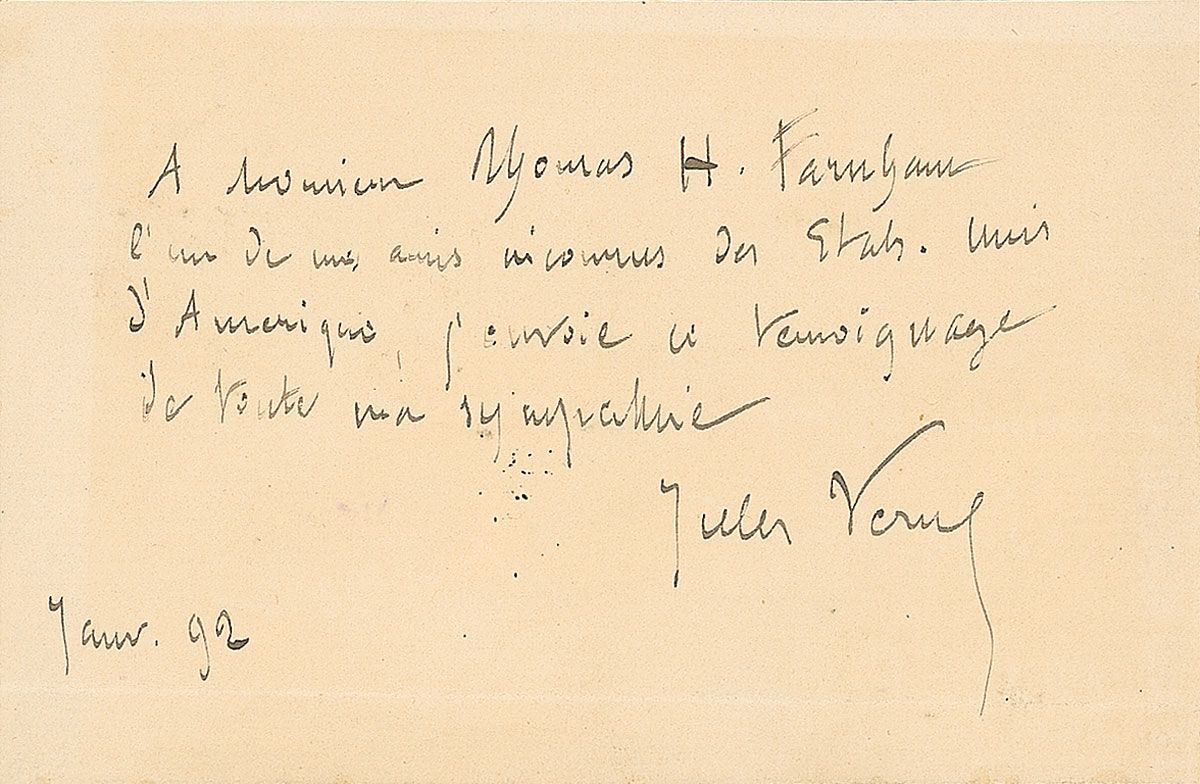 A Monsieur Thomas H. Farnham
l'un de mes amis inconnus des Etats-Unis
d'Amerique, j'envoie ce temoignage
de toute ma sympathie
Jules Verne
Janv. 92